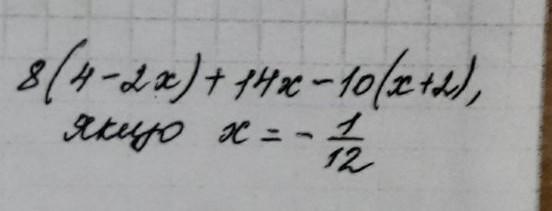 8(4-2x)+14x-10(x+2),
якщо x = - 1/12